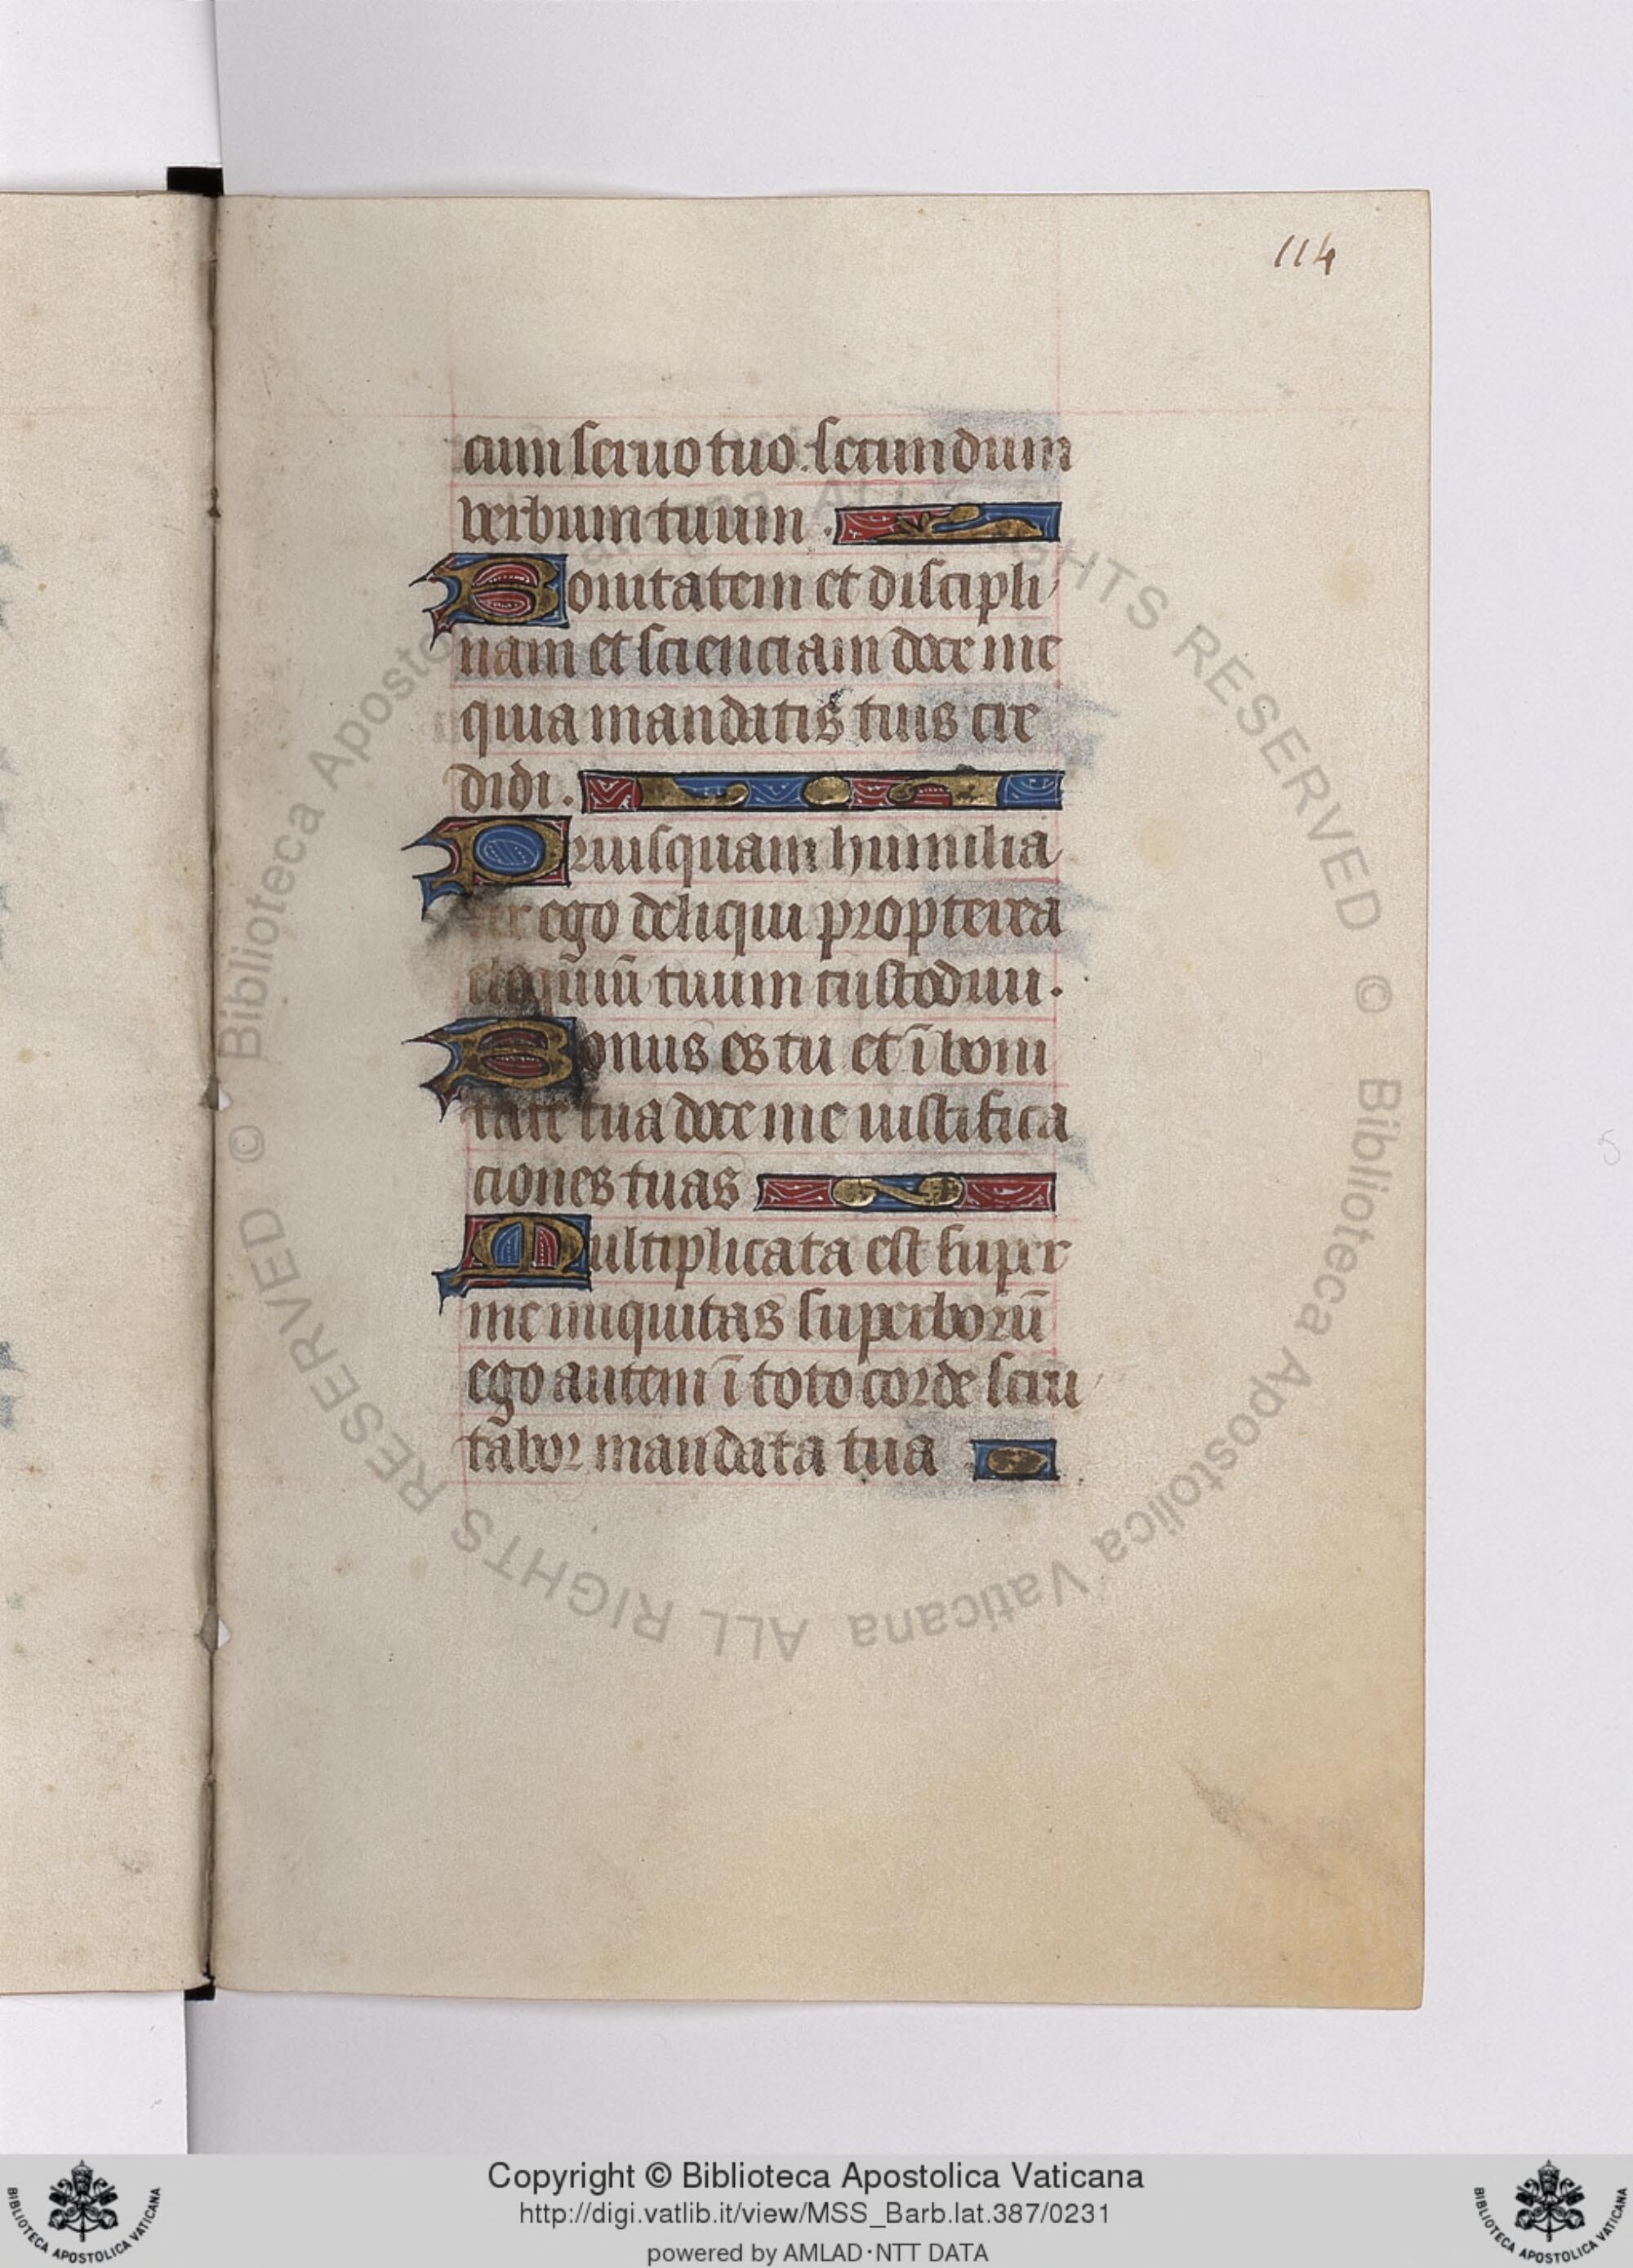 114
cum seruo tuo. secundum
verbum tuum.
Bonitatem et discipli
nam et scienciam doce me
quia mandatis tuis cre
didi.
Priusquam humilia
ego deliqui propterea
eloquiū tuum custodiui.
Bonus es tu et ī boni
tate tua doce me iustifica
ciones tuas
Multiplicata est super
me iniquitas superborū
ego autem ī toto corde scru
tabor mandata tua
© Biblioteca Apostolica Vaticana ALL RIGHTS RESERVED © Biblioteca Apostolica Vaticana ALL RIGHTS RESERVED
Copyright © Biblioteca Apostolica Vaticana
http://digi.vatlib.it/view/MSS_Barb.lat.387/0231
powered by AMLAD·NTT DATA
BIBLIOTECA APOSTOLICA VATICANA
BIBLIOTECA APOSTOLICA VATICANA